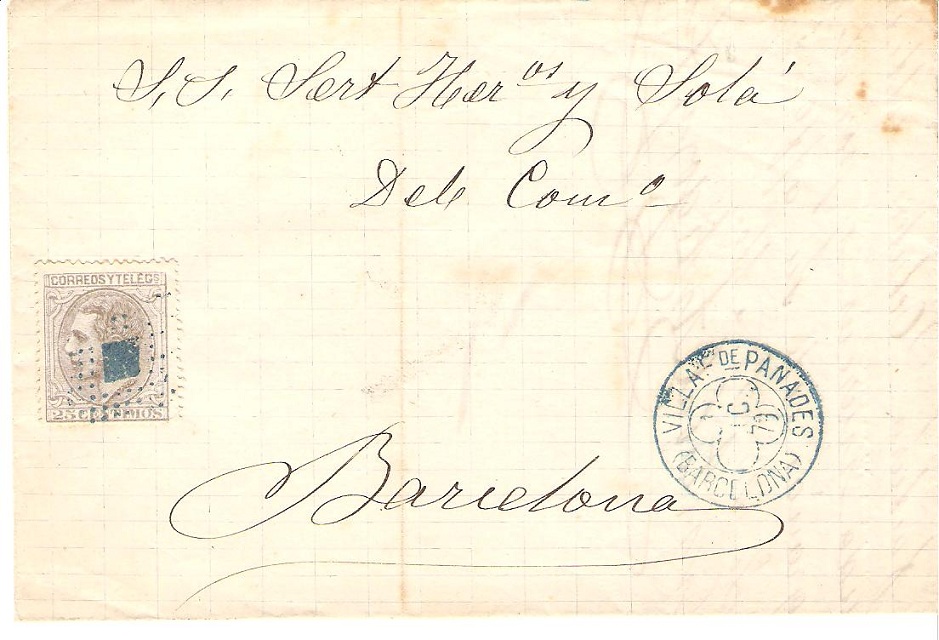 S. S. Sert Her.os y Solá
Del Com.o
CORREOS Y TELEGS
25 CENTIMOS
VILLA.F DE PANADES
(BARCELONA)
79
Barcelona